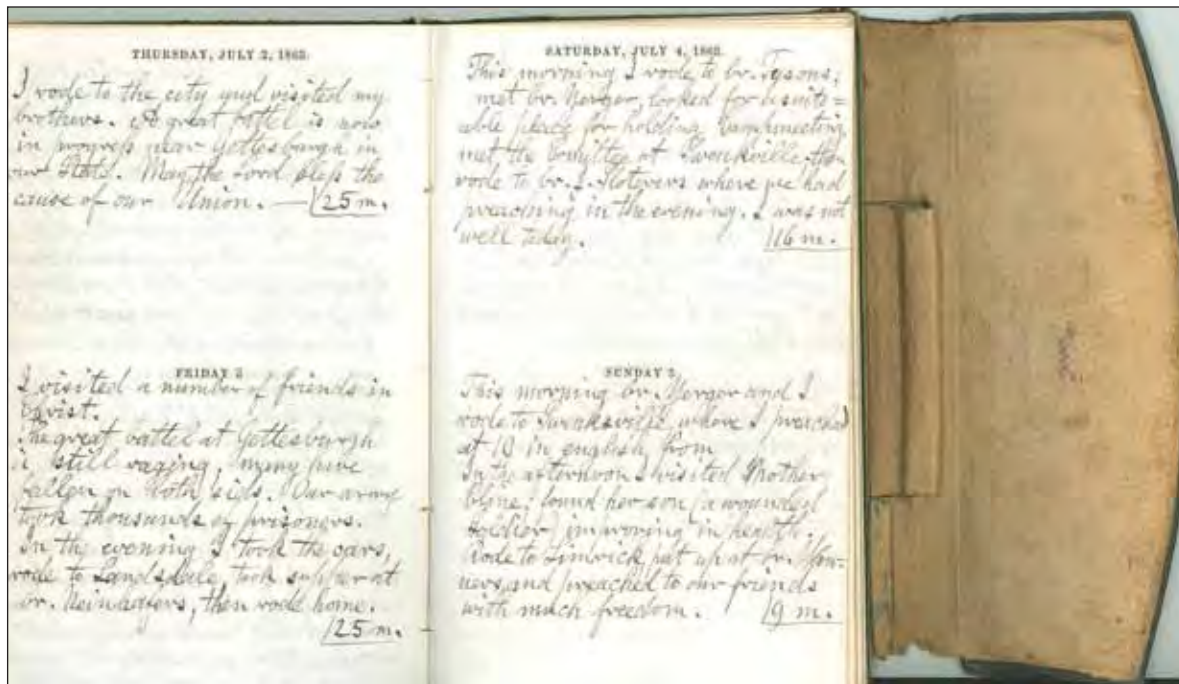 THURSDAY, JULY 2, 1863.
I rode to the city and visited my
brothers. A great battel is now
in progress near Gettesburgh in
our State. May the Lord bless the
cause of our Union. — 25 m.
FRIDAY 3
I visited a number of friends in
Christ.
The great battel at Gettesburgh
is still raging. many have
fallen on both sids. Our army
took thousands of prisoners.
In the evening I took the cars,
rode to Landsdale, took supper at
br. then rode home.
25 m.
SATURDAY, JULY 4, 1863.
This morning I rode to br. Tysons,
met br. looked for a suite=
able place for holding Campmeeting
met the Comittee at then
rode to br. where we had
preaching in the evening. I was not
well today. 16 m.
SUNDAY 5.
This morning br. and I
rode to where I preached
at 10 in english from
In the afternoon I visited Mother
found her son (a wounded
soldier) improving in health.
Rode to Limrick put up at br.
and preached to our friends
with much freedom. 9 m.